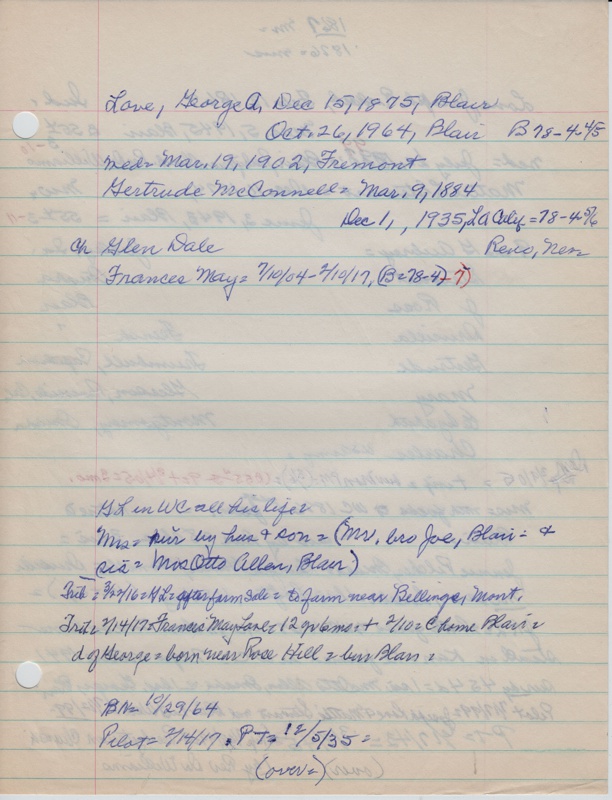 Love, George A, Dec 15, 1875, Blair
Oct. 26, 1964, Blair B 78-4-#5
Med= Mar. 19, 1902, Fremont
Gertrude McConnell= Mar, 9, 1884
Dec 1, , 1935, LA Calif =78-4-#6
Ch Glen Dale Reno, Nev
Frances May= 7/10/04-2/10/17, (B=78-4)-7)
GL in WC all his life=
Mrs= sur by hus & son= (Mr. bro Joe, Blair= &
sis= Mrs Otto Allen, Blair)
Trib= 3/22/16=GL=after farm sale= to farm near Billings, Mont.
Trib= 2/14/17=Francis May Love=12 yr 6mos+ 2/10=C home Blair=
d of George=born near Rose Hill= bur Blair=
BN= 10/29/64
Pilot= 2/14/17. PT= 12/5/35=
(over=)